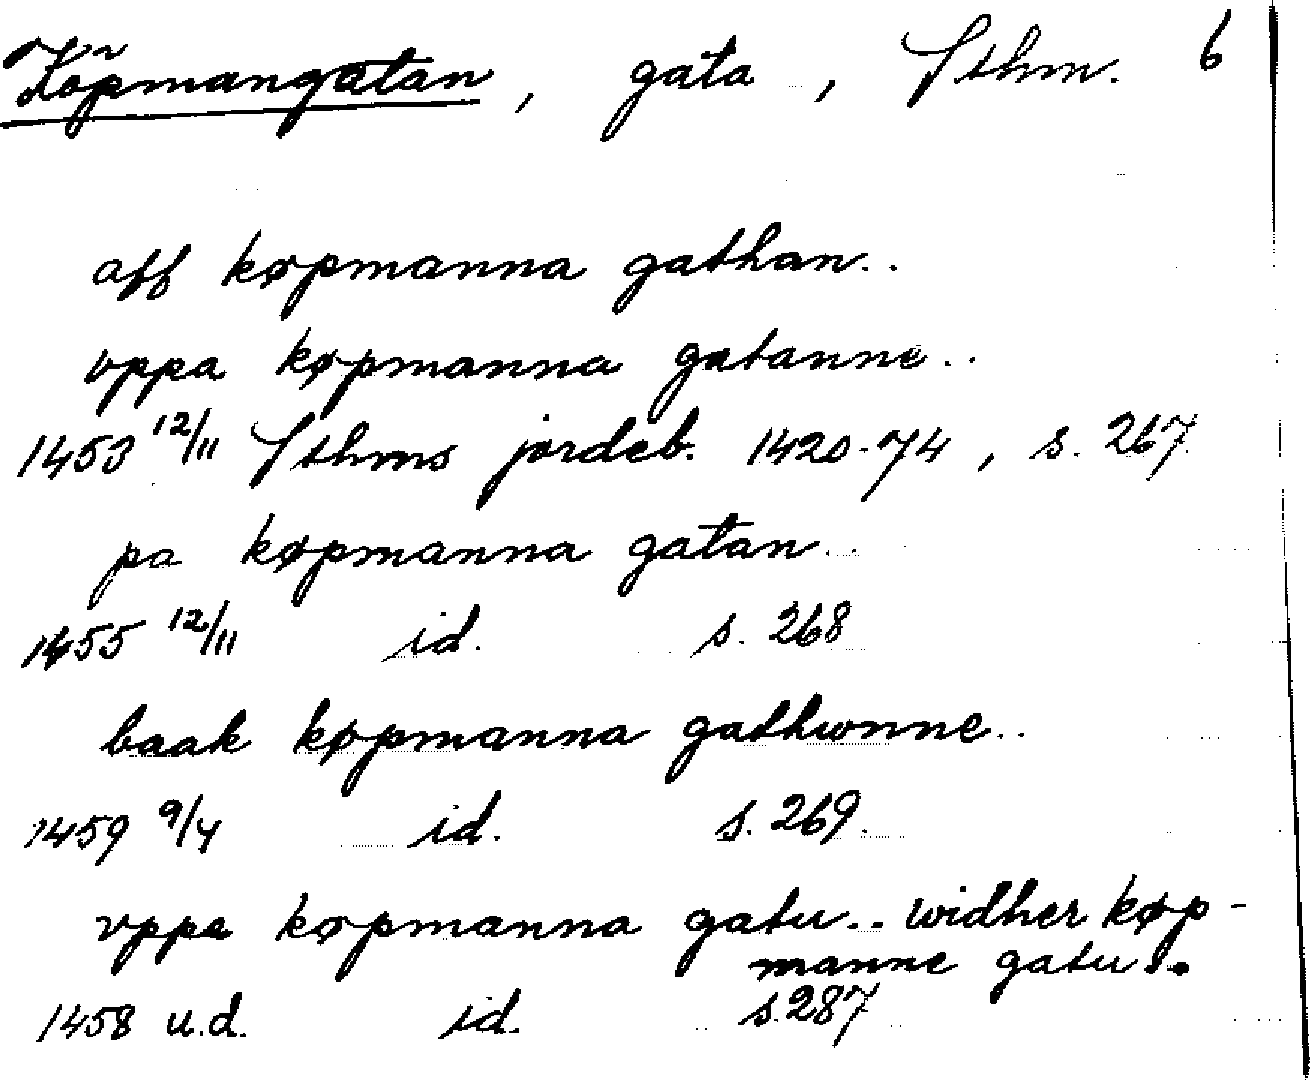 Köpmangatan, gata, Sthm. 6
aff køpmanna gathan..
vppa køpmanna gatanne..
1453 12/11 Sthms jordeb. 1420-74, s. 267
pa køpmanna gatan..
1455 12/11 id. s. 268
baak køpmanna gathwnne..
1459 9/4 id. s. 269.
vppa køpmanna gatu.. widher køp-
manne gatu..
1458 u.d. id. s. 287